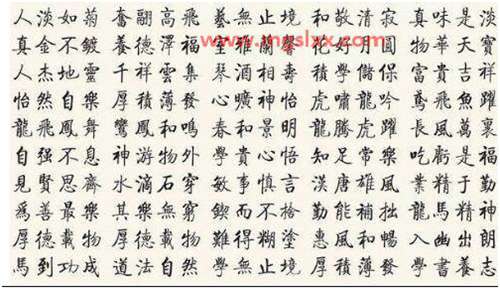 人淡如菊 奮翮高飛 藝無止境 和敬清寂 真味是淡
真金不鍍 養德澤福 蘭馨 好 圓 物華天寶
人杰地靈 千祥雲集 琴酒相壽 積學儲 富貴吉祥
怡然自樂 厚積薄發 心曠神怡 虎嘯龍吟 鳶飛魚躍
龍飛鳳舞 鸞鳳和鳴 春和景明 龍騰虎躍 長風萬裏
自强不息 神游物外 學貴心悟 知足常樂 吃虧是福
見賢思齊 水滴石穿 敏事慎言 漢唐雄風 業精于勤
爲善最樂 其樂無窮 鍥而不捨 勤能補拙 龍馬精神
厚德載物 厚德載物 難得糊塗 惠風和暢 入幽出朗
馬到功成 道法自然 學無止境 厚積薄發 學書養志